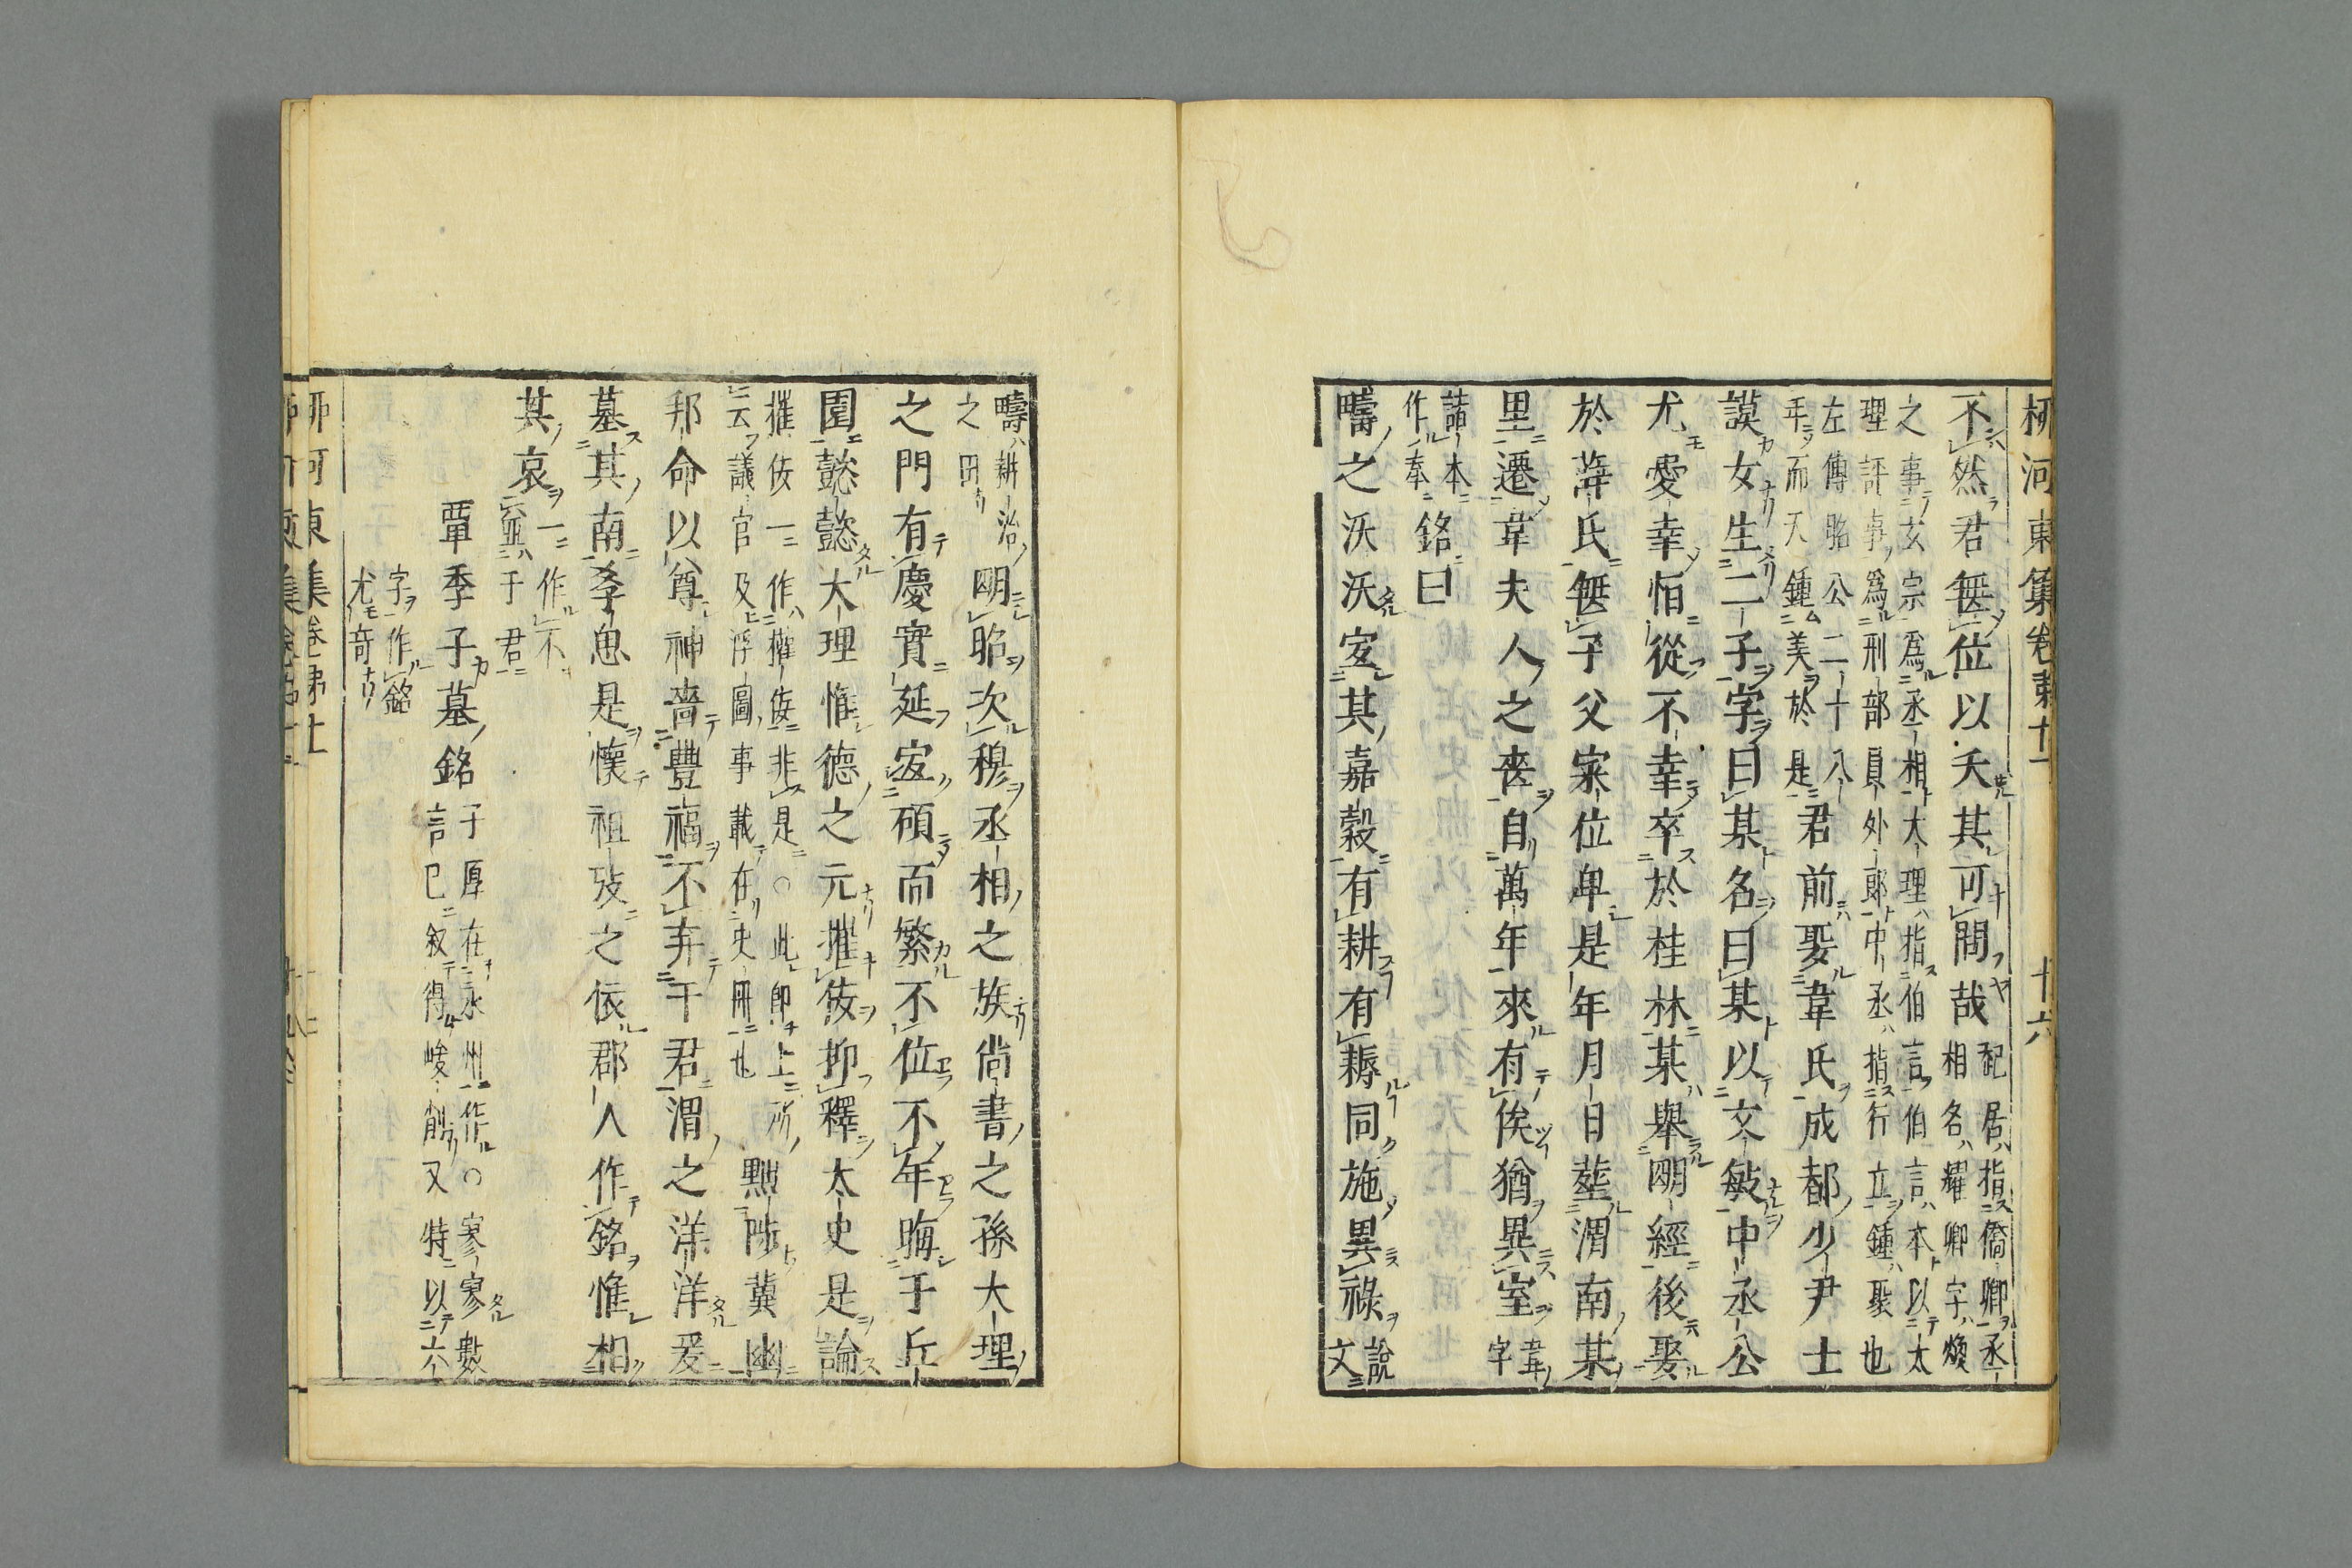 柳河東集卷第十一 十六
不然君無位以夭其可問哉
記居指僑卿丞
相名耀卿字煥
之事玄宗爲丞相大理指伯言伯言本以太
理評事爲刑部員外郎中丞指行立鍾聚也
左傳昭公二十八
年而天鍾美於是
君前娶韋氏成都少尹士
謨女生二子字曰某名曰某以文敏中丞公
尤愛幸怕從不幸卒於桂林某舉明經後娶
於薛氏無子父寀位卑是年月日葬渭南某
里遷韋夫人之喪自萬年來有俟猶異室
韋
字
詰本
作奉
銘曰
疇之沃沃寔其嘉穀有耕有耨同施異祿
說
文
疇耕治
之田
明昭次穆丞相之族尚書之孫大理
之門有慶實延寔碩而繁不位不年晦于丘
園懿懿大理惟德之元摧佞抑釋太史是論
摧佞一作摧佞非是○此即上所
云議官及浮圖事載在史冊也
黜陟冀幽
邦命以尊神嗇豐福不弃干君渭之洋洋爰
墓其南孝思是懷祖攷之依郡人作銘惟相
其哀
一作不
茲于君
覃季子墓銘
子厚在永州作○寥寥數
言已叙得峻削又特以六
字作銘
尤奇
柳河東集卷第十一